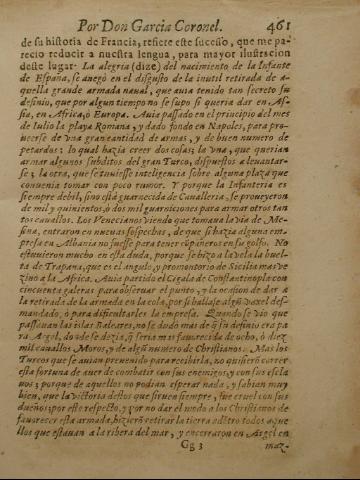 Por Don Garcia Coronel. 461
de su historia de Francia, refiere este sucesso, que me pa-
recio reducir a nuestra lengua, para mayor ilustracion
deste lugar: La alegria (dize) del nacimento de la Infante
de España, se anegò en el disgusto de la inutil retirada de a-
quella grande armada naual, que auia tenido tan secreto su
desinio, que por algun tiempo no se supo si queria dar en As-
sia, en Africa, ò Europa. Auia passado en el principio del mes
de Iulio la playa Romana, y dado fondo en Napoles, para pro-
ueerse de vna gran cantidad de armas, y de buen numero de
petardos: lo qual hazia creer dos cosas; la vna, que querian
armar algunos subditos del gran Turco, dispuestos a leuantar-
se; la otra, que se tuuiesse inteligencia sobre alguna plaza que
conuenia tomar con poco rumor. Y porque la Infanteria es
siempre debil, sino està guarnecida de Caualleria, se proueyeron
de mil y quinientos, ò dos mil guarniciones para armar otros tan
tos cauallos. Los Venecianos viendo que tomaua la via de Me-
sina, entraron en nueuas sospechas, de que si hazia alguna em-
presa en Albania no fuesse para tener cõpañeros en su golfo. No
estuuieron mucho en esta duda, porque se hizo a la vela la buel-
ta de Trapana, que es el angulo, y promontorio de Sicilia mas ve-
zino a la Africa. Auia partido el Cigala de Constantinopla con
cincuenta galeras para obseruar el punto, y la ocasion de dar a
la retirada de la armada en la cola, por si hallase algũ vaxel des-
mandado, ò para dificultarles la empresa. Quando se vio que
passauan las islas Baleares, no se dudò mas de q̃ su desinio era pa-
ra Argel, donde se dezia, q̃ seria mas fauorecida de ocho, ò diez
mil cauallos Moros, y de algũ numero de Christianos. Mas los
Turcos que se auian preuenido para recibirla, no quisierõ correr
esta fortuna de auer de combatir con sus enemigos, y con sus escla
uos; porque de aquellos no podian esperar nada, y sabian muy
bien, que la victoria destos que siruen siempre, fue cruel con sus
dueños; por este respecto, y por no dar el modo a los Christianos de
fauorecer esta armada, hizierõ retirar la tierra adẽtro todos aque
llos que estauan a la ribera del mar, y encerraron en Argel en
Gg 3 maz-